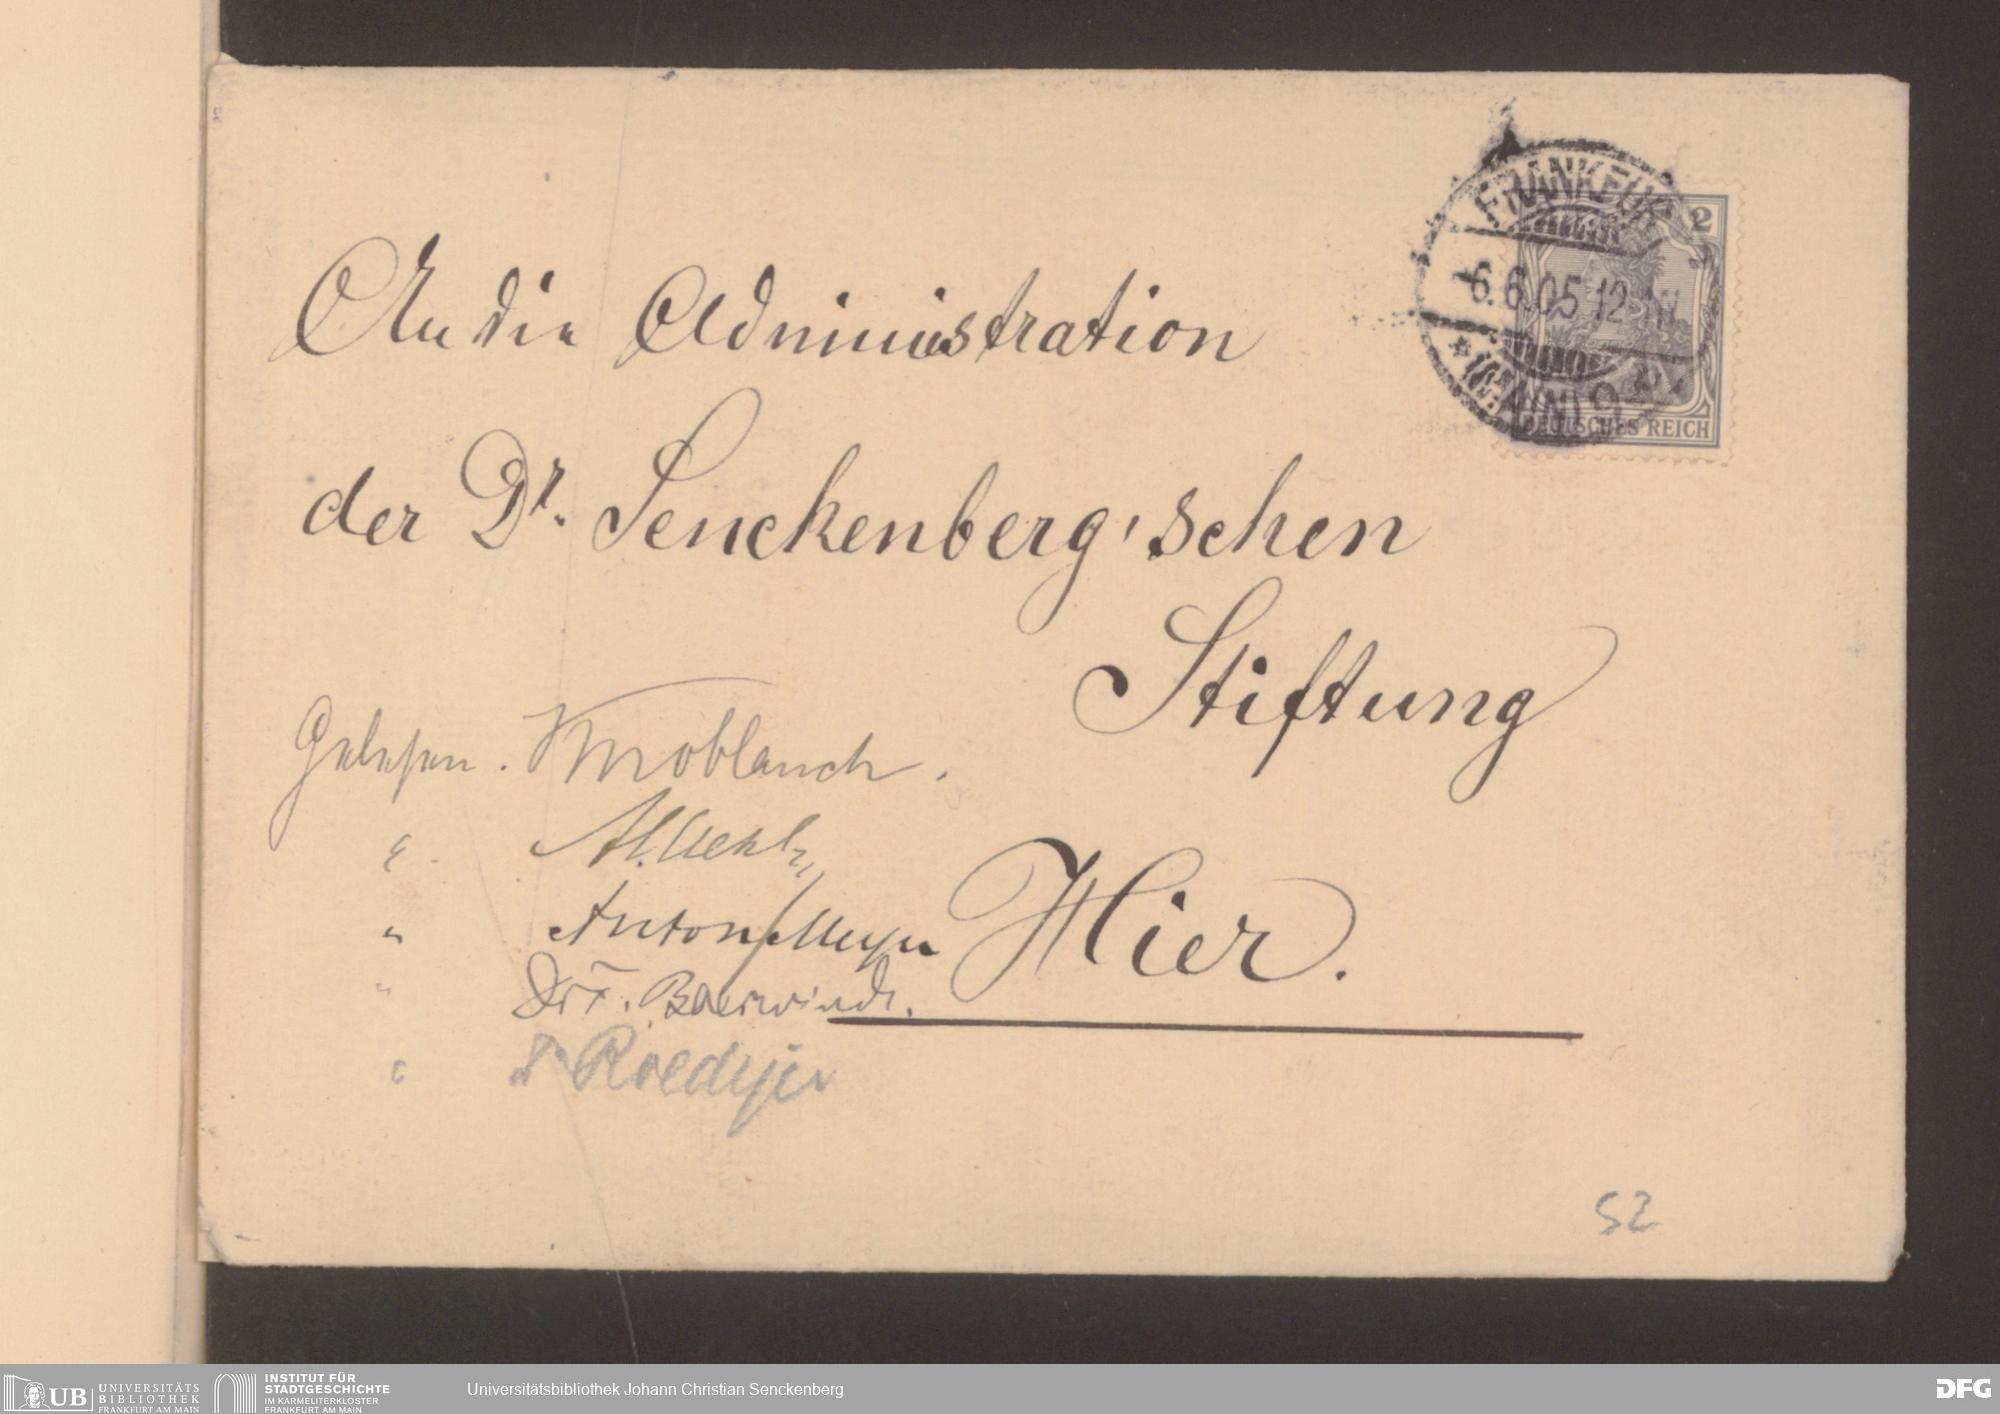 FRANKFURT
6.6.05.12
* (MAIN) 9
2
DEUTSCHES REICH
An die Administration
der Dr. Senckenberg'schen
Stiftung
Hier.
Gelesen. Knoblauch.
" Anton Meyer
" Dr. F. Baerwindt.
" Dr Roediger
52
UB UNIVERSITÄTS
BIBLIOTHEK
FRANKFURT AM MAIN
INSTITUT FÜR
STADTGESCHICHTE
IM KARMELITERKLOSTER
FRANKFURT AM MAIN
Universitätsbibliothek Johann Christian Senckenberg
DFG